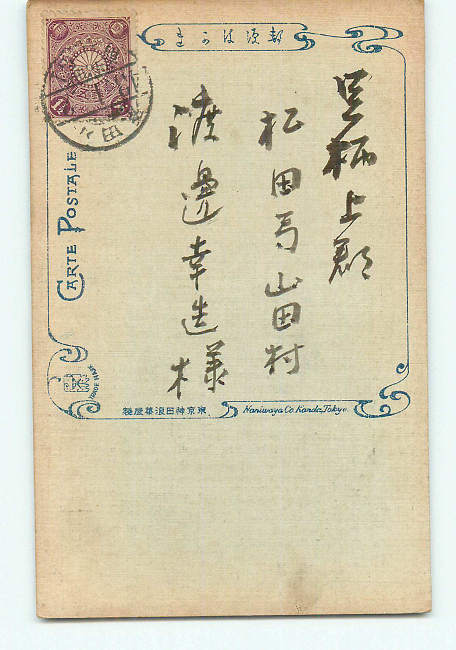 郵便はかき
足柄上郡
松田局山田村
渡邊幸造様
CARTE POSTALE
TRADE MARK
東京神田浪華屋製
Naniwaya Co. Kanda, Tokyo.
1½